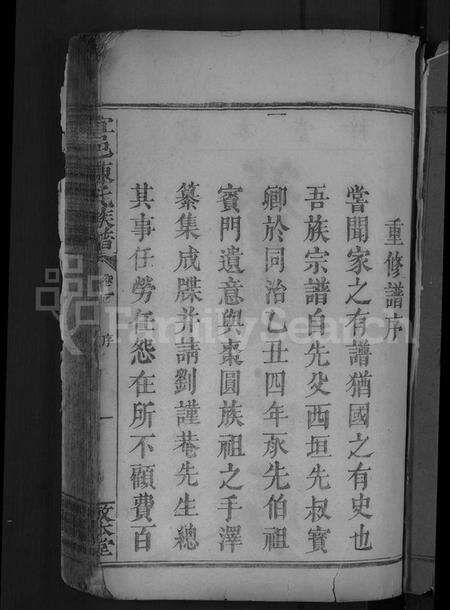 重修譜序
嘗聞家之有譜猶國之有史也
吾族宗譜自先父西垣先叔寶
卿於同治乙丑四年承先伯祖
賓門遺意與棗圓族祖之手澤
纂集成牒并請劉謹菴先生總
其事任勞任怨在所不顧費百
宜邑陳氏族譜
序
一
堂
FamilySearch